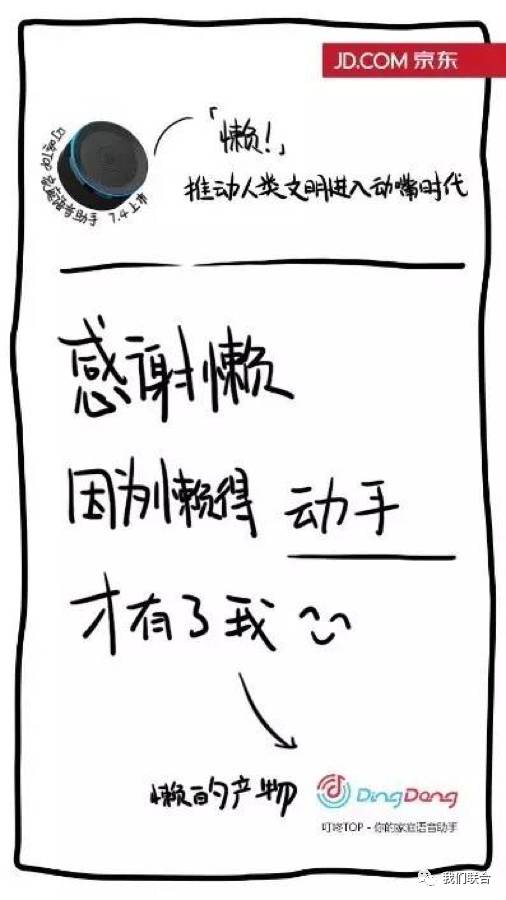 JD.COM 京东
「懒!」
推动人类文明进入动嘴时代
叮咚TOP 家庭语音助手 7.4上市
感谢懒
因为懒得 动手
才有了我
懒的产物
DingDong
叮咚TOP - 你的家庭语音助手
我们联合